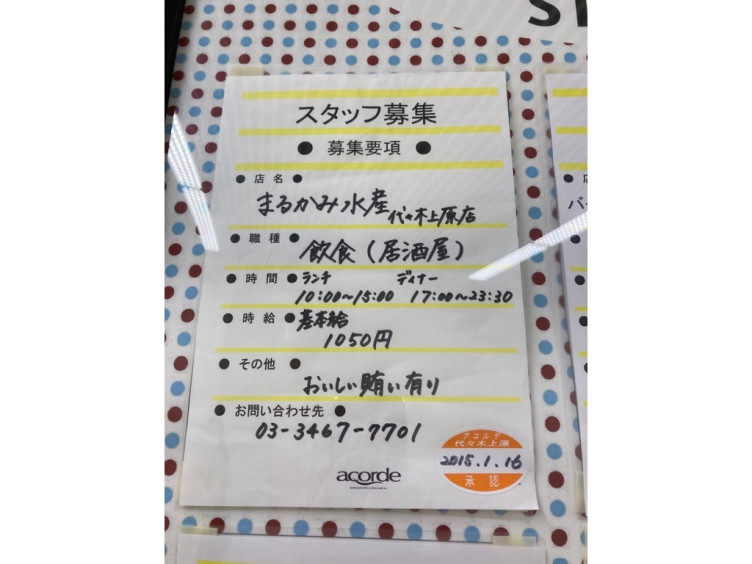 ST
スタッフ募集
● 募集要項 ●
● 店名 ●
まるかみ水産 代々木上原店
● 職種 ●
飲食(居酒屋)
● 時間 ● ランチ ディナー
10:00~15:00 17:00~23:30
● 時給 ● 基本給
1050円
● その他 ●
おいしい賄い有り
● お問い合わせ先 ●
03-3467-7701
アコルデ
代々木上原
2015.1.16
承認
acorde
バ